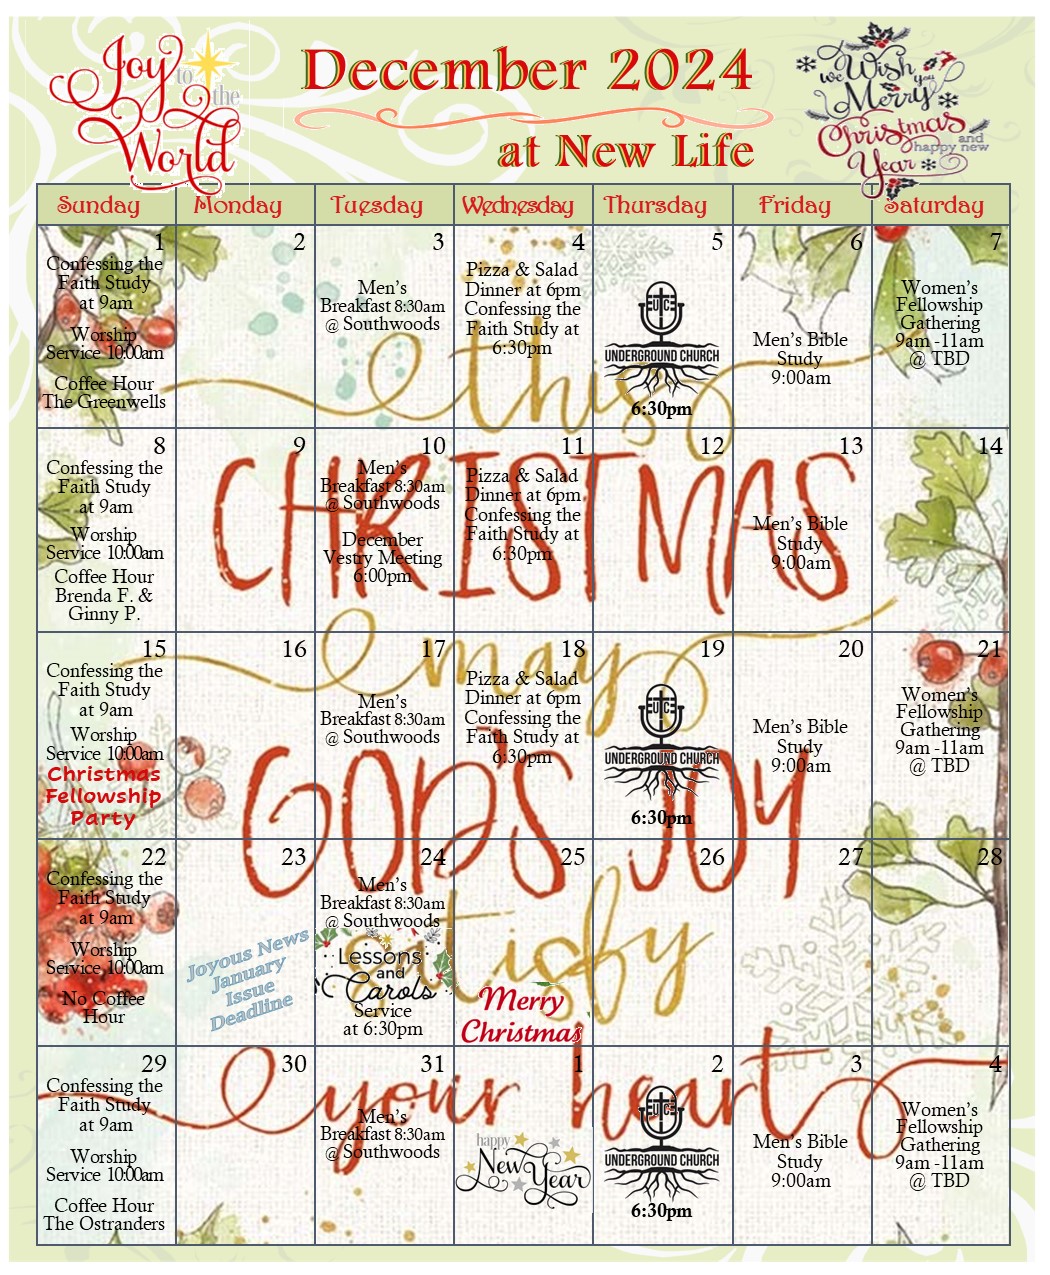 Joy
to
the
World
December 2024
at New Life
we Wish you
Merry
Christmas
and
happy new
Year
Sunday Monday Tuesday Wednesday Thursday Friday Saturday
1
Confessing the
Faith Study
at 9am
Worship
Service 10:00am
Coffee Hour
The Greenwells
2
3
Men's
Breakfast 8:30am
@ Southwoods
4
Pizza & Salad
Dinner at 6pm
Confessing the
Faith Study at
6:30pm
5
UNDERGROUND CHURCH
6:30pm
6
Men's Bible
Study
9:00am
7
Women's
Fellowship
Gathering
9am -11am
@ TBD
this
8
Confessing the
Faith Study
at 9am
Worship
Service 10:00am
Coffee Hour
Brenda F. &
Ginny P.
9
10
Men's
Breakfast 8:30am
@ Southwoods
December
Vestry Meeting
6:00pm
11
Pizza & Salad
Dinner at 6pm
Confessing the
Faith Study at
6:30pm
12
13
Men's Bible
Study
9:00am
14
CHRISTMAS
may
15
Confessing the
Faith Study
at 9am
Worship
Service 10:00am
Christmas
Fellowship
Party
16
17
Men's
Breakfast 8:30am
@ Southwoods
18
Pizza & Salad
Dinner at 6pm
Confessing the
Faith Study at
6:30pm
19
UNDERGROUND CHURCH
6:30pm
20
Men's Bible
Study
9:00am
21
Women's
Fellowship
Gathering
9am -11am
@ TBD
GOD'S JOY
22
Confessing the
Faith Study
at 9am
Worship
Service 10:00am
No Coffee
Hour
23
Joyous News
January
Issue
Deadline
24
Men's
Breakfast 8:30am
@ Southwoods
Lessons
and
Carols
Service
at 6:30pm
25
Merry
Christmas
26
27
28
satisfy
29
Confessing the
Faith Study
at 9am
Worship
Service 10:00am
Coffee Hour
The Ostranders
30
31
Men's
Breakfast 8:30am
@ Southwoods
1
happy
New Year
2
UNDERGROUND CHURCH
6:30pm
3
Men's Bible
Study
9:00am
4
Women's
Fellowship
Gathering
9am -11am
@ TBD
your heart